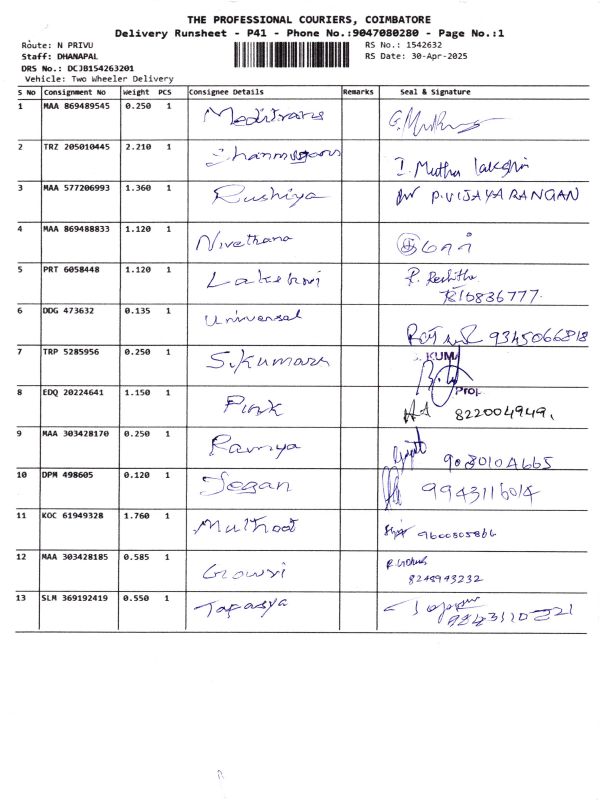 THE PROFESSIONAL COURIERS, COIMBATORE
Delivery Runsheet - P41 - Phone No.:9047080280 - Page No.:1
Route: N PRIVU RS No.: 1542632
Staff: DHANAPAL RS Date: 30-Apr-2025
DRS No.: DCJB154263201
Vehicle: Two Wheeler Delivery
S No Consignment No Weight PCS Consignee Details Remarks Seal & Signature
1 MAA 869489545 0.250 1 Meditrans
2 TRZ 205010445 2.210 1 Shanmugam I. Muthu lakshmi
3 MAA 577206993 1.360 1 Rushiya P.VIJAYARANGAN
4 MAA 869488833 1.120 1 Nivethana
5 PRT 6058448 1.120 1 Lakshmi
6 DDG 473632 0.135 1 Universal 9345066818
7 TRP 5285956 0.250 1 S.Kumaran KUM
Prop.
8 EDQ 20224641 1.150 1 Pink 822004949.
9 MAA 303428170 0.250 1 Ramya
10 DPM 498605 0.120 1 Jegan 9943116014
11 KOC 61949328 1.760 1 Muthoot 9600805866
12 MAA 303428185 0.585 1 Gowri
8248943232
13 SLM 369192419 0.550 1 Tapasya